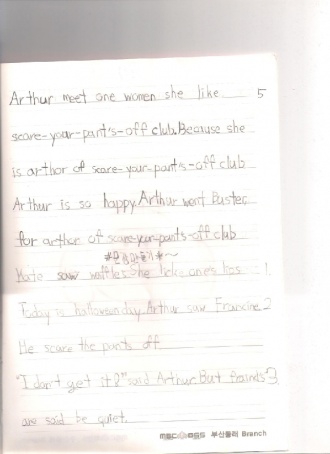 Arthur meet one women she like 5
scare-your-pant's-off club. Because she
is arthor of scare-your-pant's-off club
Arthur is so happy. Arthur went Buster
for arthor of scare-your-pant's-off club
Kate saw waffles. She licke one's lips 1
Today is halloween day. Arthur saw Francine 2
He scare the pants off.
"I don't get it?" said Arthur. But friends 3
are said be quiet.
부산둘러 Branch